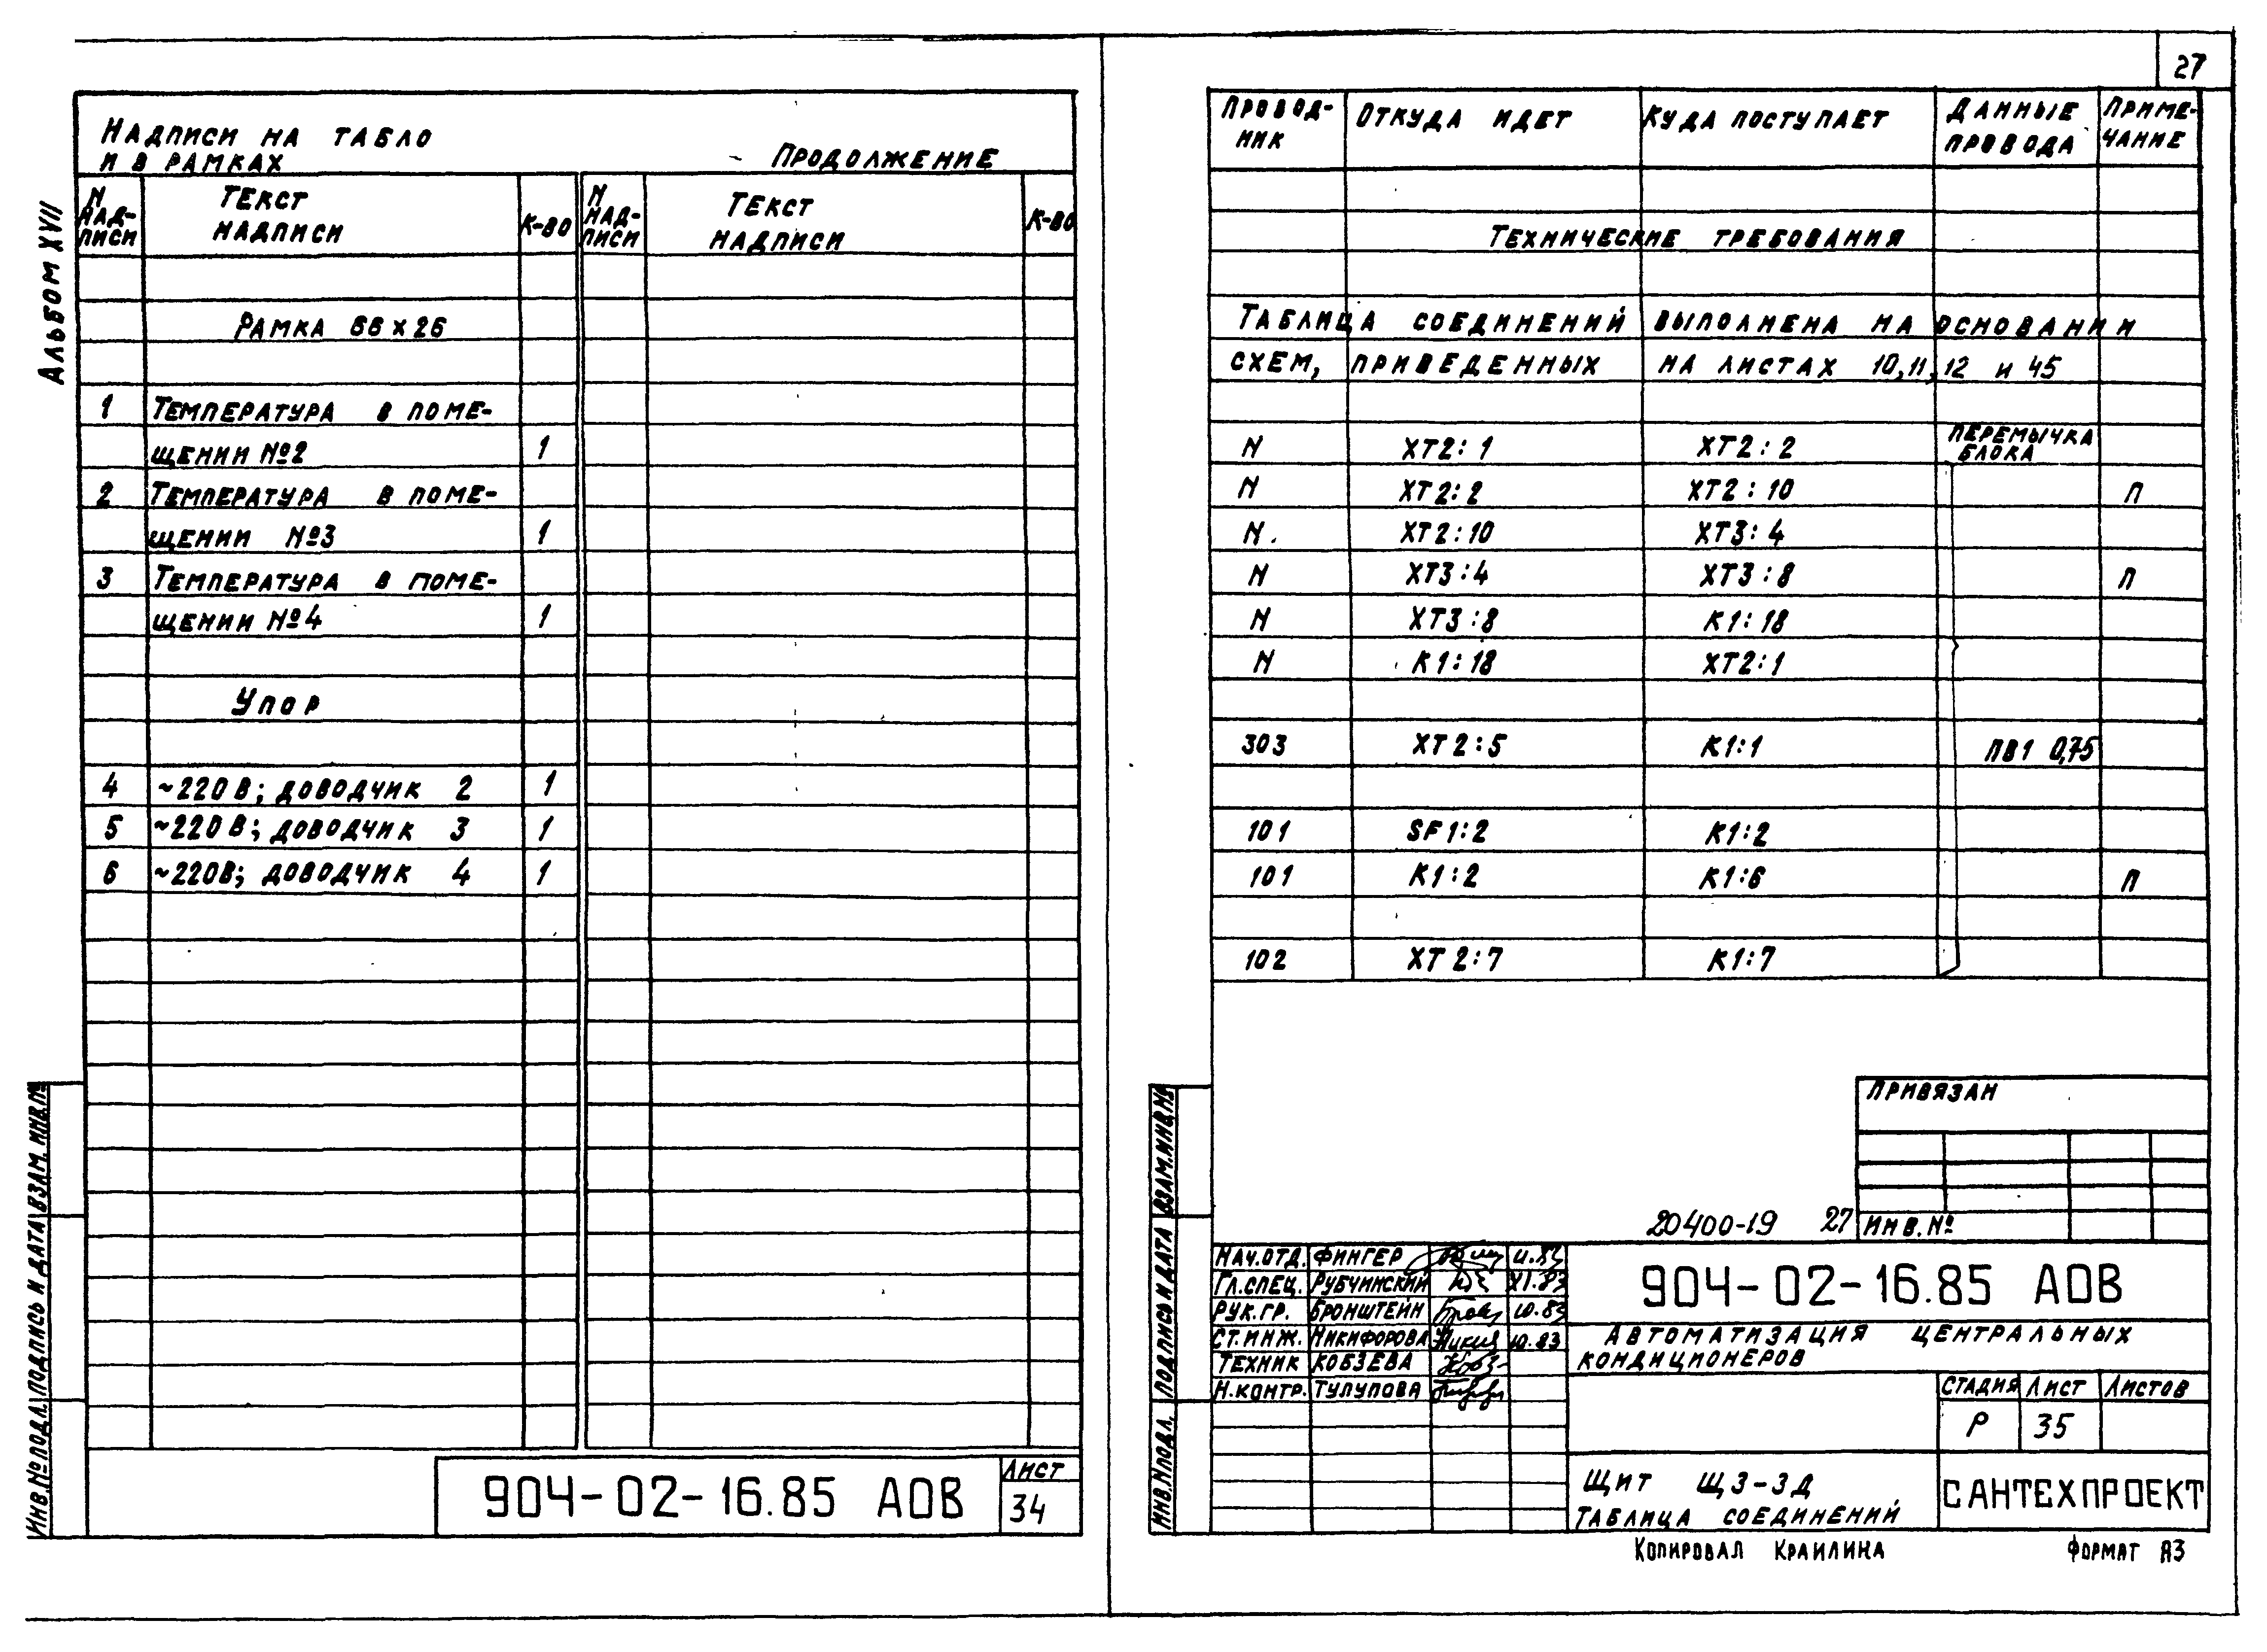 27
Альбом XVII
Надписи на табло
и в рамках Продолжение
N надписи Текст надписи К-во N надписи Текст надписи К-во
Рамка 66х26
1 Температура в поме-
щении №2 1
2 Температура в поме-
щении №3 1
3 Температура в поме-
щении №4 1
Упор
4 ~220В; доводчик 2 1
5 ~220В; доводчик 3 1
6 ~220В; доводчик 4 1
Инв.№ подл. Подпись и дата Взам.инв.№
904-02-16.85 АОВ
Лист
34
Провод-
ник Откуда идет Куда поступает Данные провода Приме-
чание
Технические требования
Таблица соединений выполнена на основании
схем, приведенных на листах 10,11,12 и 45
N ХТ2:1 ХТ2:2 перемычка блока
N ХТ2:2 ХТ2:10 П
N. ХТ2:10 ХТ3:4
N ХТ3:4 ХТ3:8 П
N ХТ3:8 К1:18
N К1:18 ХТ2:1
303 ХТ2:5 К1:1 ПВ1 0,75
101 SF1:2 К1:2
101 К1:2 К1:6 П
102 ХТ2:7 К1:7
Привязан
Инв.№
20400-19 27
Инв.N подл. Подпись и дата Взам.инв.№
Нач.отд. Фингер
Гл.спец. Рубчинский XI.83
Рук.гр. Бронштейн 10.83
Ст.инж. Никифорова 10.83
Техник Кобзева
Н.контр. Тулупова
904-02-16.85 АОВ
Автоматизация центральных
кондиционеров
Стадия Лист Листов
Р 35
Щит Щ3-3Д
Таблица соединений
САНТЕХПРОЕКТ
Копировал Краилина Формат А3